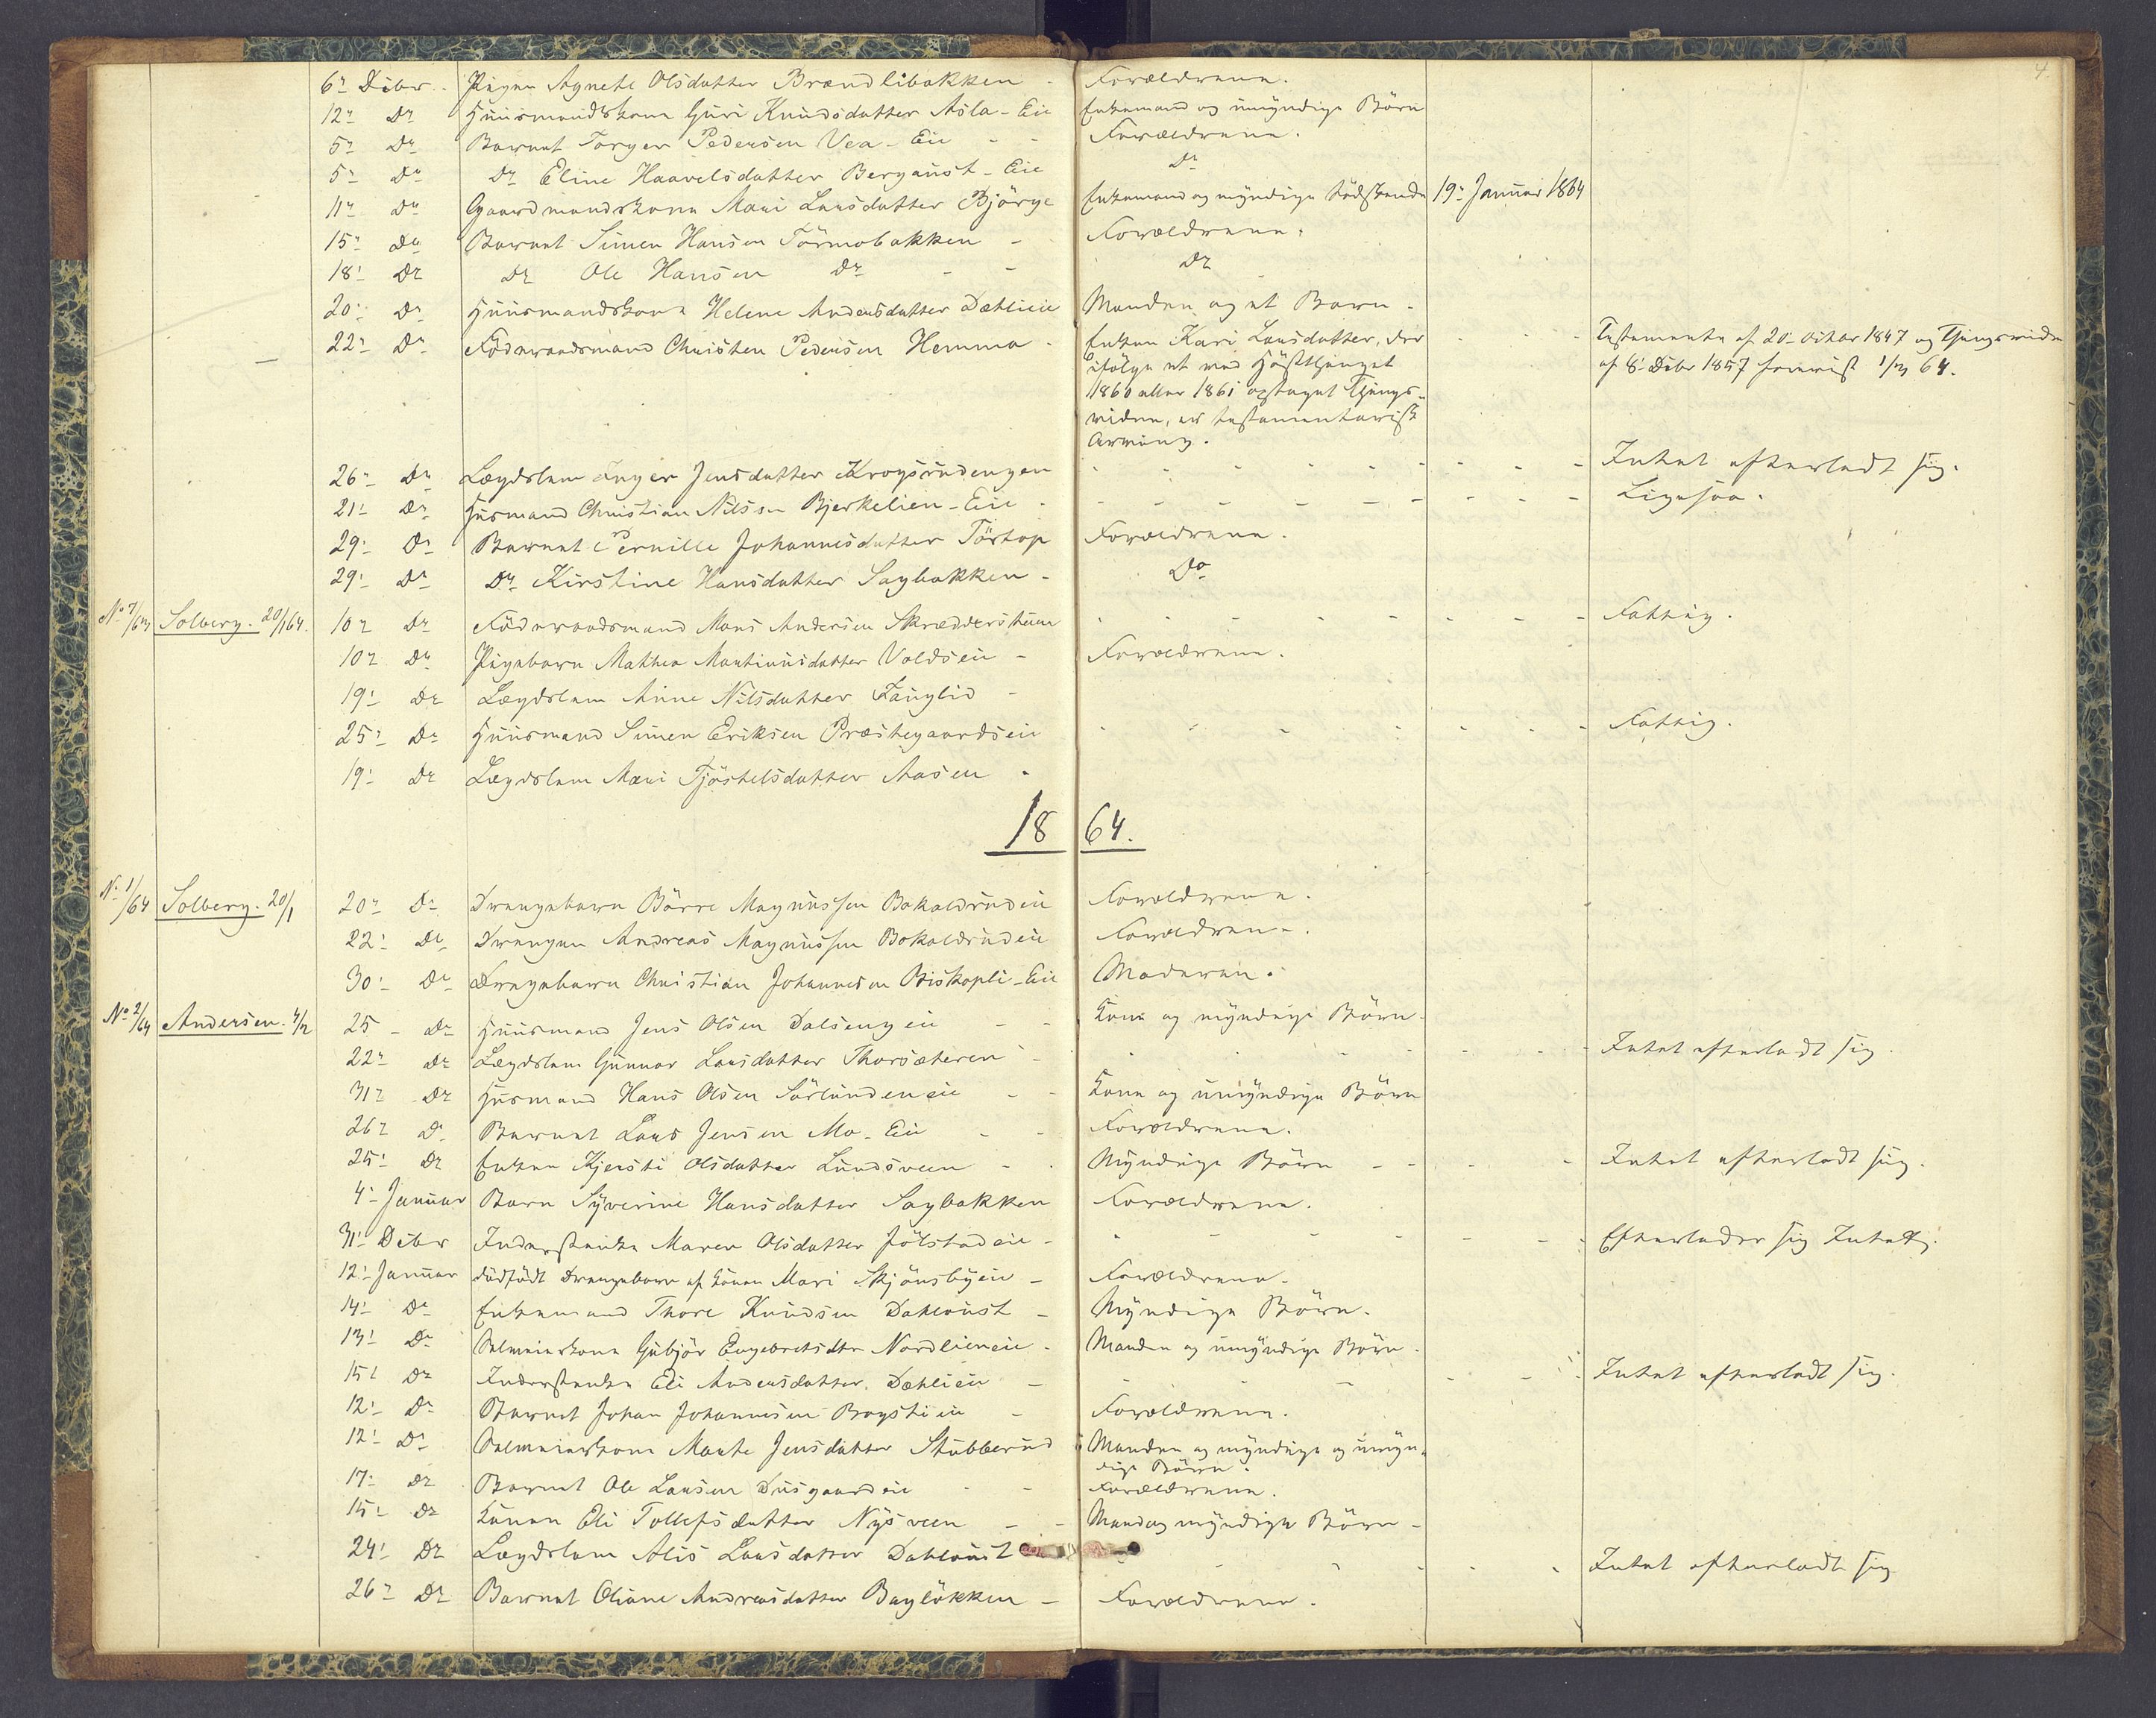 4
6- Debr. Pigen Agnete Olsdatter Brændlibakken - Forældrene.
12- Do Huusmandskone Guri Knudsdatter Asla-Eie Enkemand og umyndige Börn
5- Do Barnet Torger Pedersen Vea-Eie - - Forældrene.
5- Do Do Eline Haavelsdatter Bergaust-Eie Do
11- Do Gaardmandskone Mari Larsdatter Björge Enkemand og myndige Södskende 19- Januar 1864
15- Do Barnet Simen Hansen Törmobakken - Forældrene.
18- Do Do Ole Hansen Do - - Do
20- Do Huusmandskone Helene Andersdatter Dæhlieie Manden og et Barn.
22- Do Föderaadsmand Christen Pedersen Hemma - Enken Kari Larsdatter, der - - Testamente af 20- Octbr 1847 og Thingsvidne
ifölge et ved Hösttheinget af 8- Debr 1857 forevist 1/3 64.
1860 eller 1861 optaget Things-
vidne, er testamentarisk
Arving.
26- Do Lægdslem Inger Jensdatter Krogsrudengen - - - - Intet efterladt sig.
21- Do Husmand Christian Nilsen Bjerkelien-Eie - - - - Ligesaa.
29- Do Barnet Pernille Johannesdatter Törtop Forældrene.
29- Do Do Kirstine Hansdatter Sagbakken - Do
No 7/63 Solberg. 20/1 64. 10- Do Föderaadsmand Mons Andersen Skrædderstuen - - - - Fattig.
10- Do Pigebarn Mathea Martinusdatter Voldseie - Forældrene.
19- Do Lægdslem Anne Nilsdatter Fauglid -
25- Do Huusmand Simen Eriksen Præstegaardseie - - - - Fattig.
19- Do Lægdslem Mari Tjöstelsdatter Aasen -
1864.
No 1/64 Solberg. 20/1 20- Do Drengebarn Börre Magnussen Bakaldrudeie Forældrene.
22- Do Drengen Andreas Magnussen Bokaldrudeie Forældren-.
30- Do Drengebarn Christian Johannesen Biskopli-Eie Moderen.
No 2/64 Andersen. 4/2 25- Do Huusmand Jens Olsen Dalsengeie - - Kone og myndige Börn.
22- Do Lægdslem Gunnor Larsdatter Thorsæteren - - - - Intet efterladt sig.
31- Do Husmand Hans Olsen Sörlundeneie - - Kone og umyndige Börn
26- Do Barnet Lars Jensen Mo-Eie - - Forældrene.
25- Do Enken Kjersti Olsdatter Lundsveen - - Myndige Börn - - - - Intet efterladt sig.
4- Januar Barn Syverine Hansdatter Sagbakken Forældrene.
31- Debr Inderstenke Maren Olsdatter Jölstadeie - - - - Efterlader sig Intet.
12- Januar Dödfödt Drengebarn af Konen Mari Skjönsbyeie - Forældrene.
14- Do Enkemand Thore Knudsen Dahloust - Myndige Börn.
13- Do Almuekone Gubjör Engebretsdtr Nordlieneie - Manden og umyndige Börn.
15- Do Inderstenke Eli Andersdatter Dæhlieie - - - - Intet efterladt sig.
12- Do Barnet Johan Johannesen Brystieie - Forældrene.
12- Do Marte Jensdatter Stubberud Manden og myndige og umyn-
dige Börn.
17- Do Barnet Ole Larsen Diisgaardeie - - Forældrene.
15- Do Konen Eli Tollefsdatter Nysveen - - Mand og myndige Börn -
24- Do Lægdslem Alis Larsdatter Dahloust - - - - Intet efterladt sig
26- Do Barnet Oliane Andreasdatter Baglökken - Forældrene.